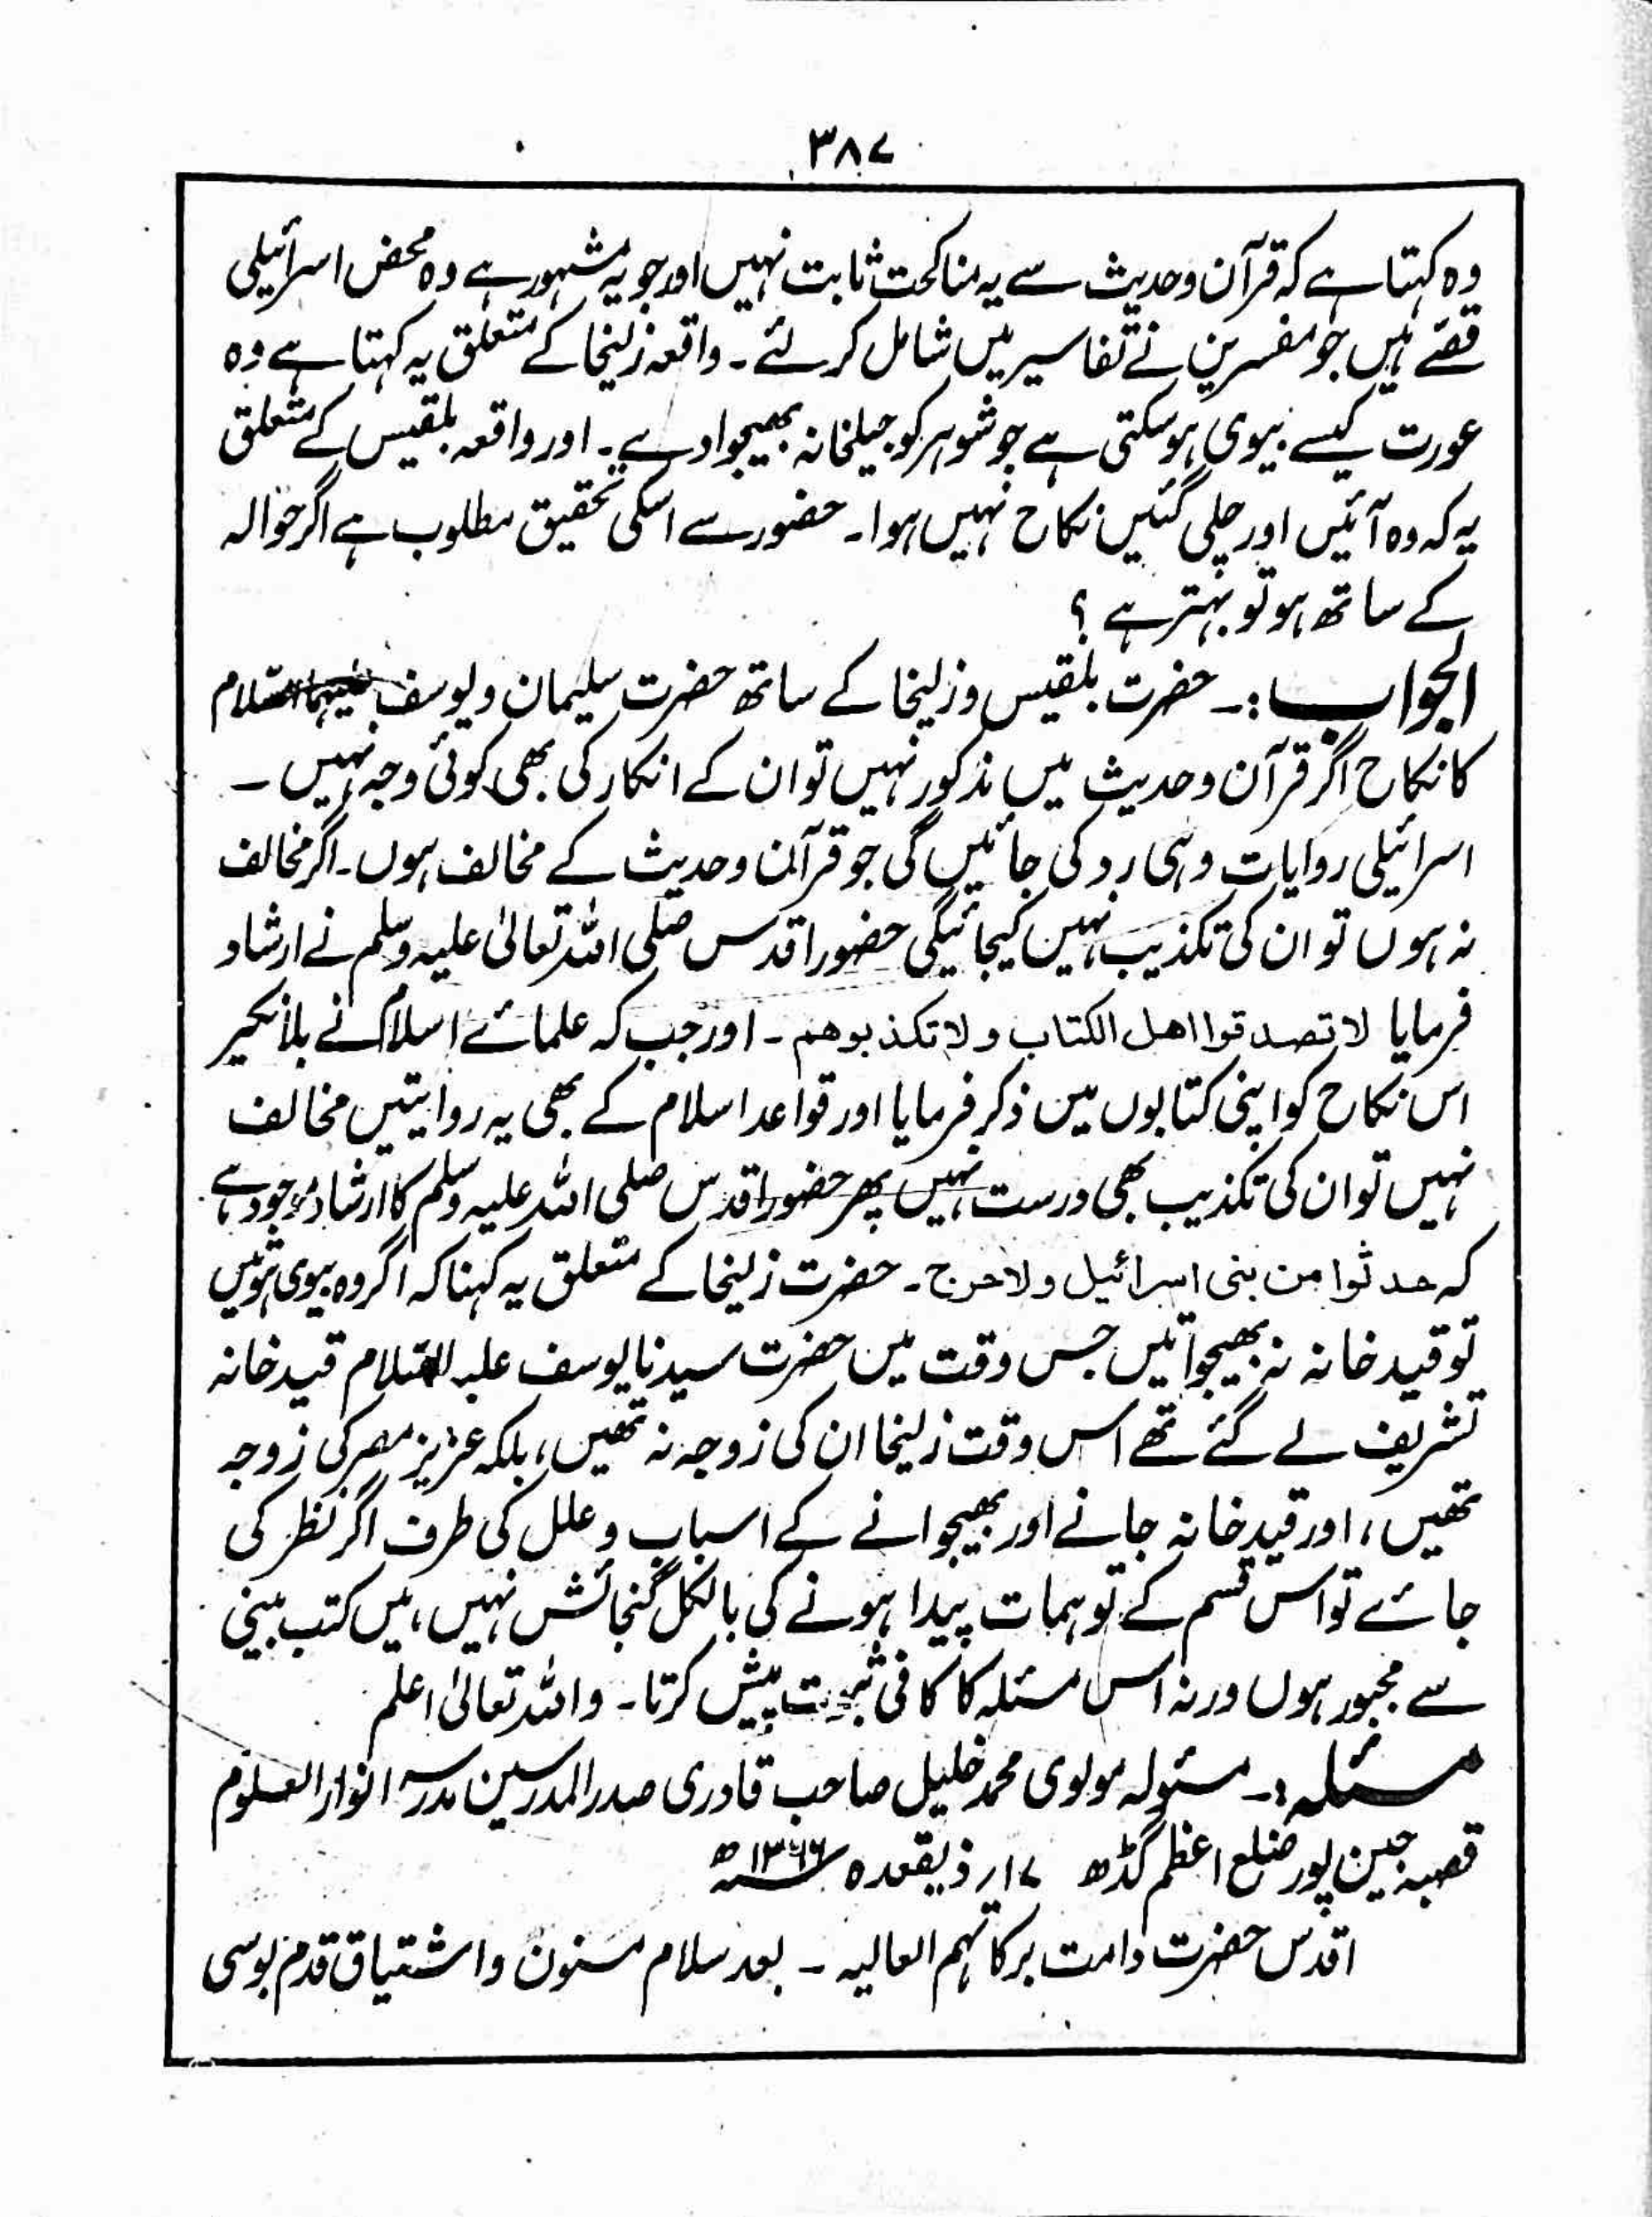 ۳۸۷
وہ کہتا ہے کہ قرآن وحدیث سے یہ مناکحت ثابت نہیں اور جو یہ مشہور ہے وہ محض اسرائیلی
قصّے ہیں جو مفسرین نے تفاسیر میں شامل کر لئے۔ واقعہ زلیخا کے متعلق یہ کہتا ہے وہ
عورت کیسے بیوی ہوسکتی ہے جو شوہر کو جیلخانہ بھیجوادے۔ اور واقعہ بلقیس کے متعلق
یہ کہ وہ آئیں اور چلی گئیں نکاح نہیں ہوا۔ حضور سے اسکی تحقیق مطلوب ہے اگر حوالہ
کے ساتھ ہو تو بہتر ہے ؟
الجواب :۔ حضرت بلقیس وزلیخا کے ساتھ حضرت سلیمان ویوسف علیہما السّلام
کا نکاح اگر قرآن وحدیث میں مذکور نہیں تو ان کے انکار کی بھی کوئی وجہ نہیں ۔
اسرائیلی روایات وہی رد کی جائیں گی جو قرآن وحدیث کے مخالف ہوں۔ اگر مخالف
نہ ہوں تو ان کی تکذیب نہیں کیجائیگی حضور اقدس صلی اللہ تعالیٰ علیہ وسلم نے ارشاد
فرمایا لا تصدقوا اھل الکتاب ولا تکذبوھم ۔ اور جب کہ علمائے اسلام نے بلانکیر
اس نکاح کو اپنی کتابوں میں ذکر فرمایا اور قواعد اسلام کے بھی یہ روایتیں مخالف
نہیں تو ان کی تکذیب بھی درست نہیں پھر حضور اقدس صلی اللہ علیہ وسلم کا ارشاد موجود ہے
کہ حدثوا من بنی اسرائیل ولا حرج ۔ حضرت زلیخا کے متعلق یہ کہنا کہ اگر وہ بیوی ہوتیں
تو قید خانہ نہ بھیجواتیں جس وقت میں حضرت سیدنا یوسف علیہ السّلام قید خانہ
تشریف لے گئے تھے اس وقت زلیخا ان کی زوجہ نہ تھیں، بلکہ عزیز مصر کی زوجہ
تھیں، اور قید خانہ جانے اور بھیجوانے کے اسباب وعلل کی طرف اگر نظر کی
جائے تو اس قسم کے توہمات پیدا ہونے کی بالکل گنجائش نہیں، میں کتب بینی
سے مجبور ہوں ورنہ اس مسئلہ کا کافی ثبوت پیش کرتا۔ واللہ تعالیٰ اعلم
مسئلہ :۔ مسئولہ مولوی محمد خلیل صاحب قادری صدر المدرسین مدرسہ انوار العلوم
قصبہ جین پور ضلع اعظم گڈھ ۱۷ر ذیقعدہ ۱۳۶۶ھ
اقدس حضرت دامت برکاتہم العالیہ ۔ بعد سلام مسنون واشتیاق قدم بوسی